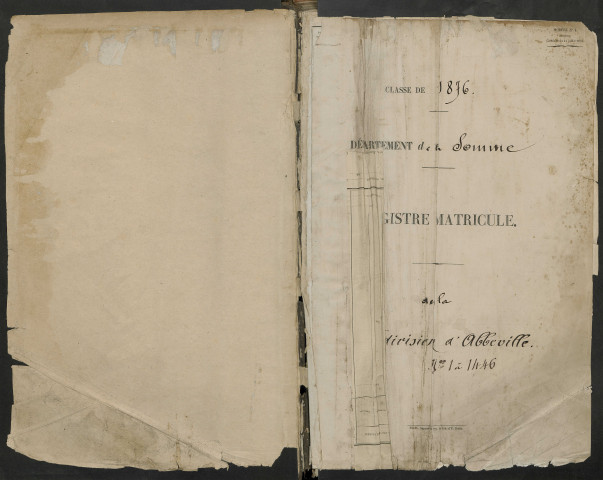 CLASSE DE 1876.
DÉPARTEMENT de la Somme
GISTRE MATRICULE.
de la
division d'Abbeville.
Nos 1 à 1446